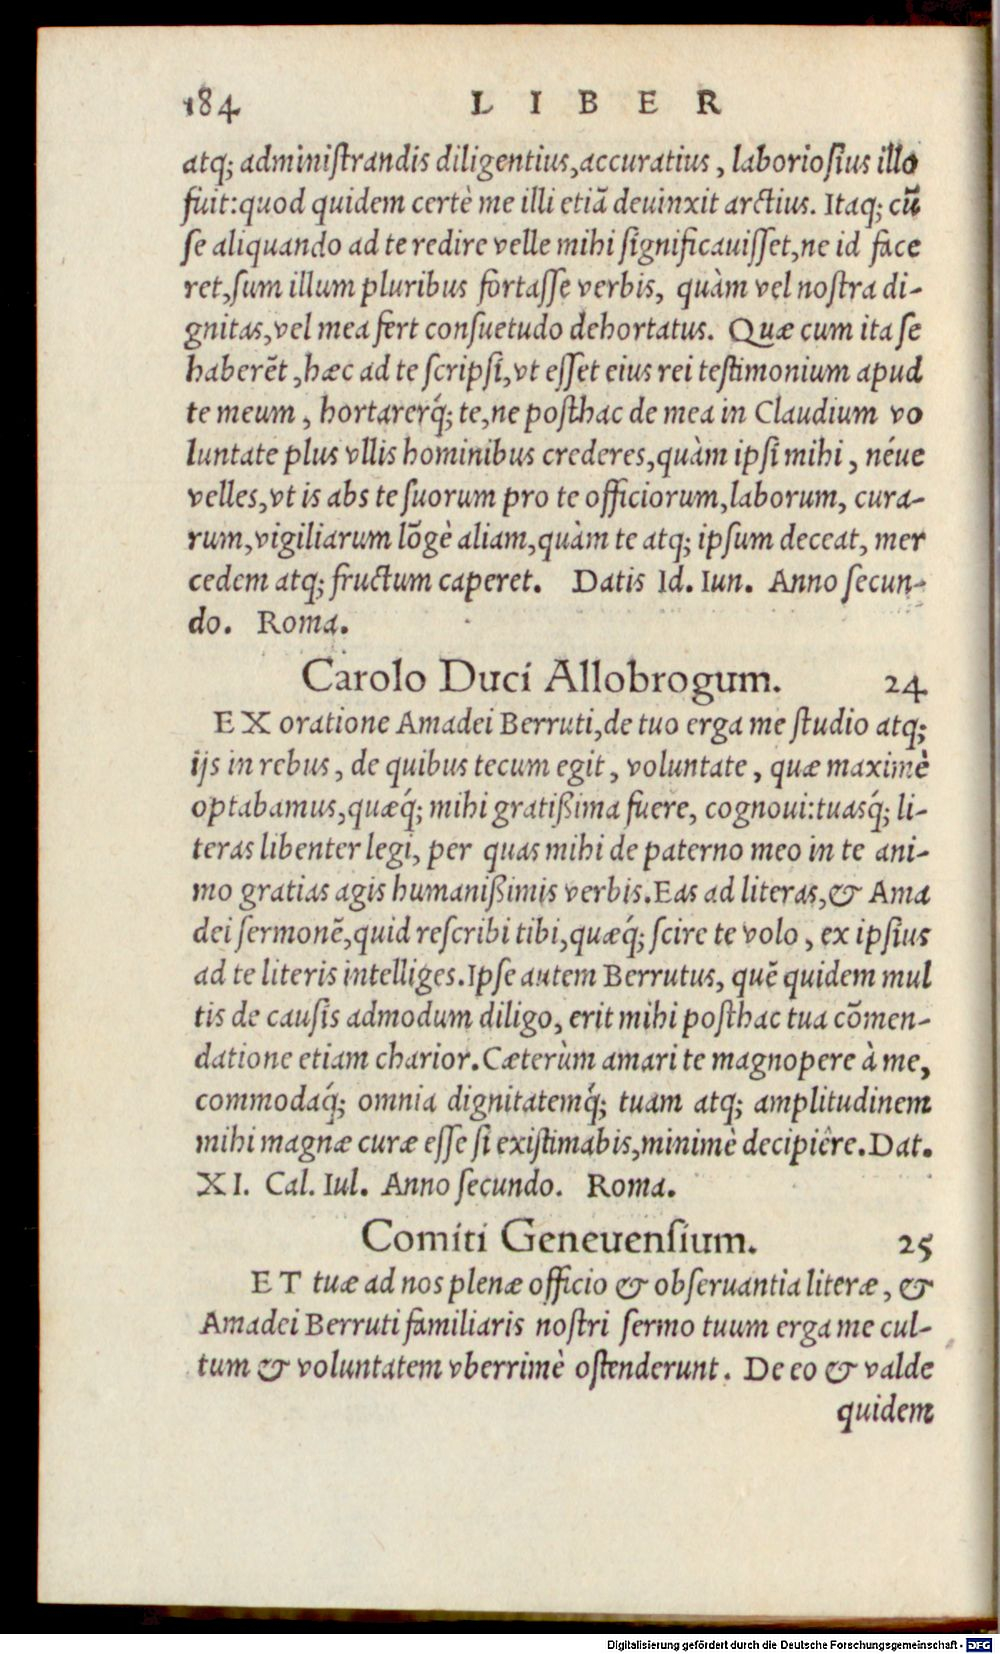 184 LIBER
atq; adminiſtrandis diligentius,accuratius, laborioſius illo
fuit:quod quidem certè me illi etiã deuinxit arctius. Itaq; cũ
ſe aliquando ad te redire velle mihi ſignificauiſſet,ne id face
ret,ſum illum pluribus fortaſſe verbis, quàm vel noſtra di-
gnitas,vel mea fert conſuetudo dehortatus. Quæ cum ita ſe
haberẽt, hæc ad te ſcripſi,vt eſſet eius rei teſtimonium apud
te meum, hortarerq́; te,ne poſthac de mea in Claudium vo
luntate plus vllis hominibus crederes,quàm ipſi mihi, néue
velles,vt is abs te ſuorum pro te officiorum,laborum, cura-
rum,vigiliarum lõgè aliam,quàm te atq; ipſum deceat, mer
cedem atq; fructum caperet. Datis Id. Iun. Anno ſecun-
do. Roma.
Carolo Duci Allobrogum. 24
EX oratione Amadei Berruti,de tuo erga me ſtudio atq;
ijs in rebus, de quibus tecum egit, voluntate, quæ maximè
optabamus,quæq́; mihi gratißima fuere, cognoui:tuasq́; li-
teras libenter legi, per quas mihi de paterno meo in te ani-
mo gratias agis humanißimis verbis.Eas ad literas,& Ama
dei ſermonẽ,quid reſcribi tibi,quæq́; ſcire te volo, ex ipſius
ad te literis intelliges.Ipſe autem Berrutus, quẽ quidem mul
tis de cauſis admodum diligo, erit mihi poſthac tua cõmen-
datione etiam charior.Cæterùm amari te magnopere à me,
commodaq́; omnia dignitatemq́; tuam atq; amplitudinem
mihi magnæ curæ eſſe ſi exiſtimabis,minimè decipiêre.Dat.
XI. Cal. Iul. Anno ſecundo. Roma.
Comiti Geneuenſium. 25
ET tuæ ad nos plenæ officio & obſeruantia literæ, &
Amadei Berruti familiaris noſtri ſermo tuum erga me cul-
tum & voluntatem vberrimè oſtenderunt. De eo & valde
quidem
Digitalisierung gefördert durch die Deutsche Forschungsgemeinschaft - DFG